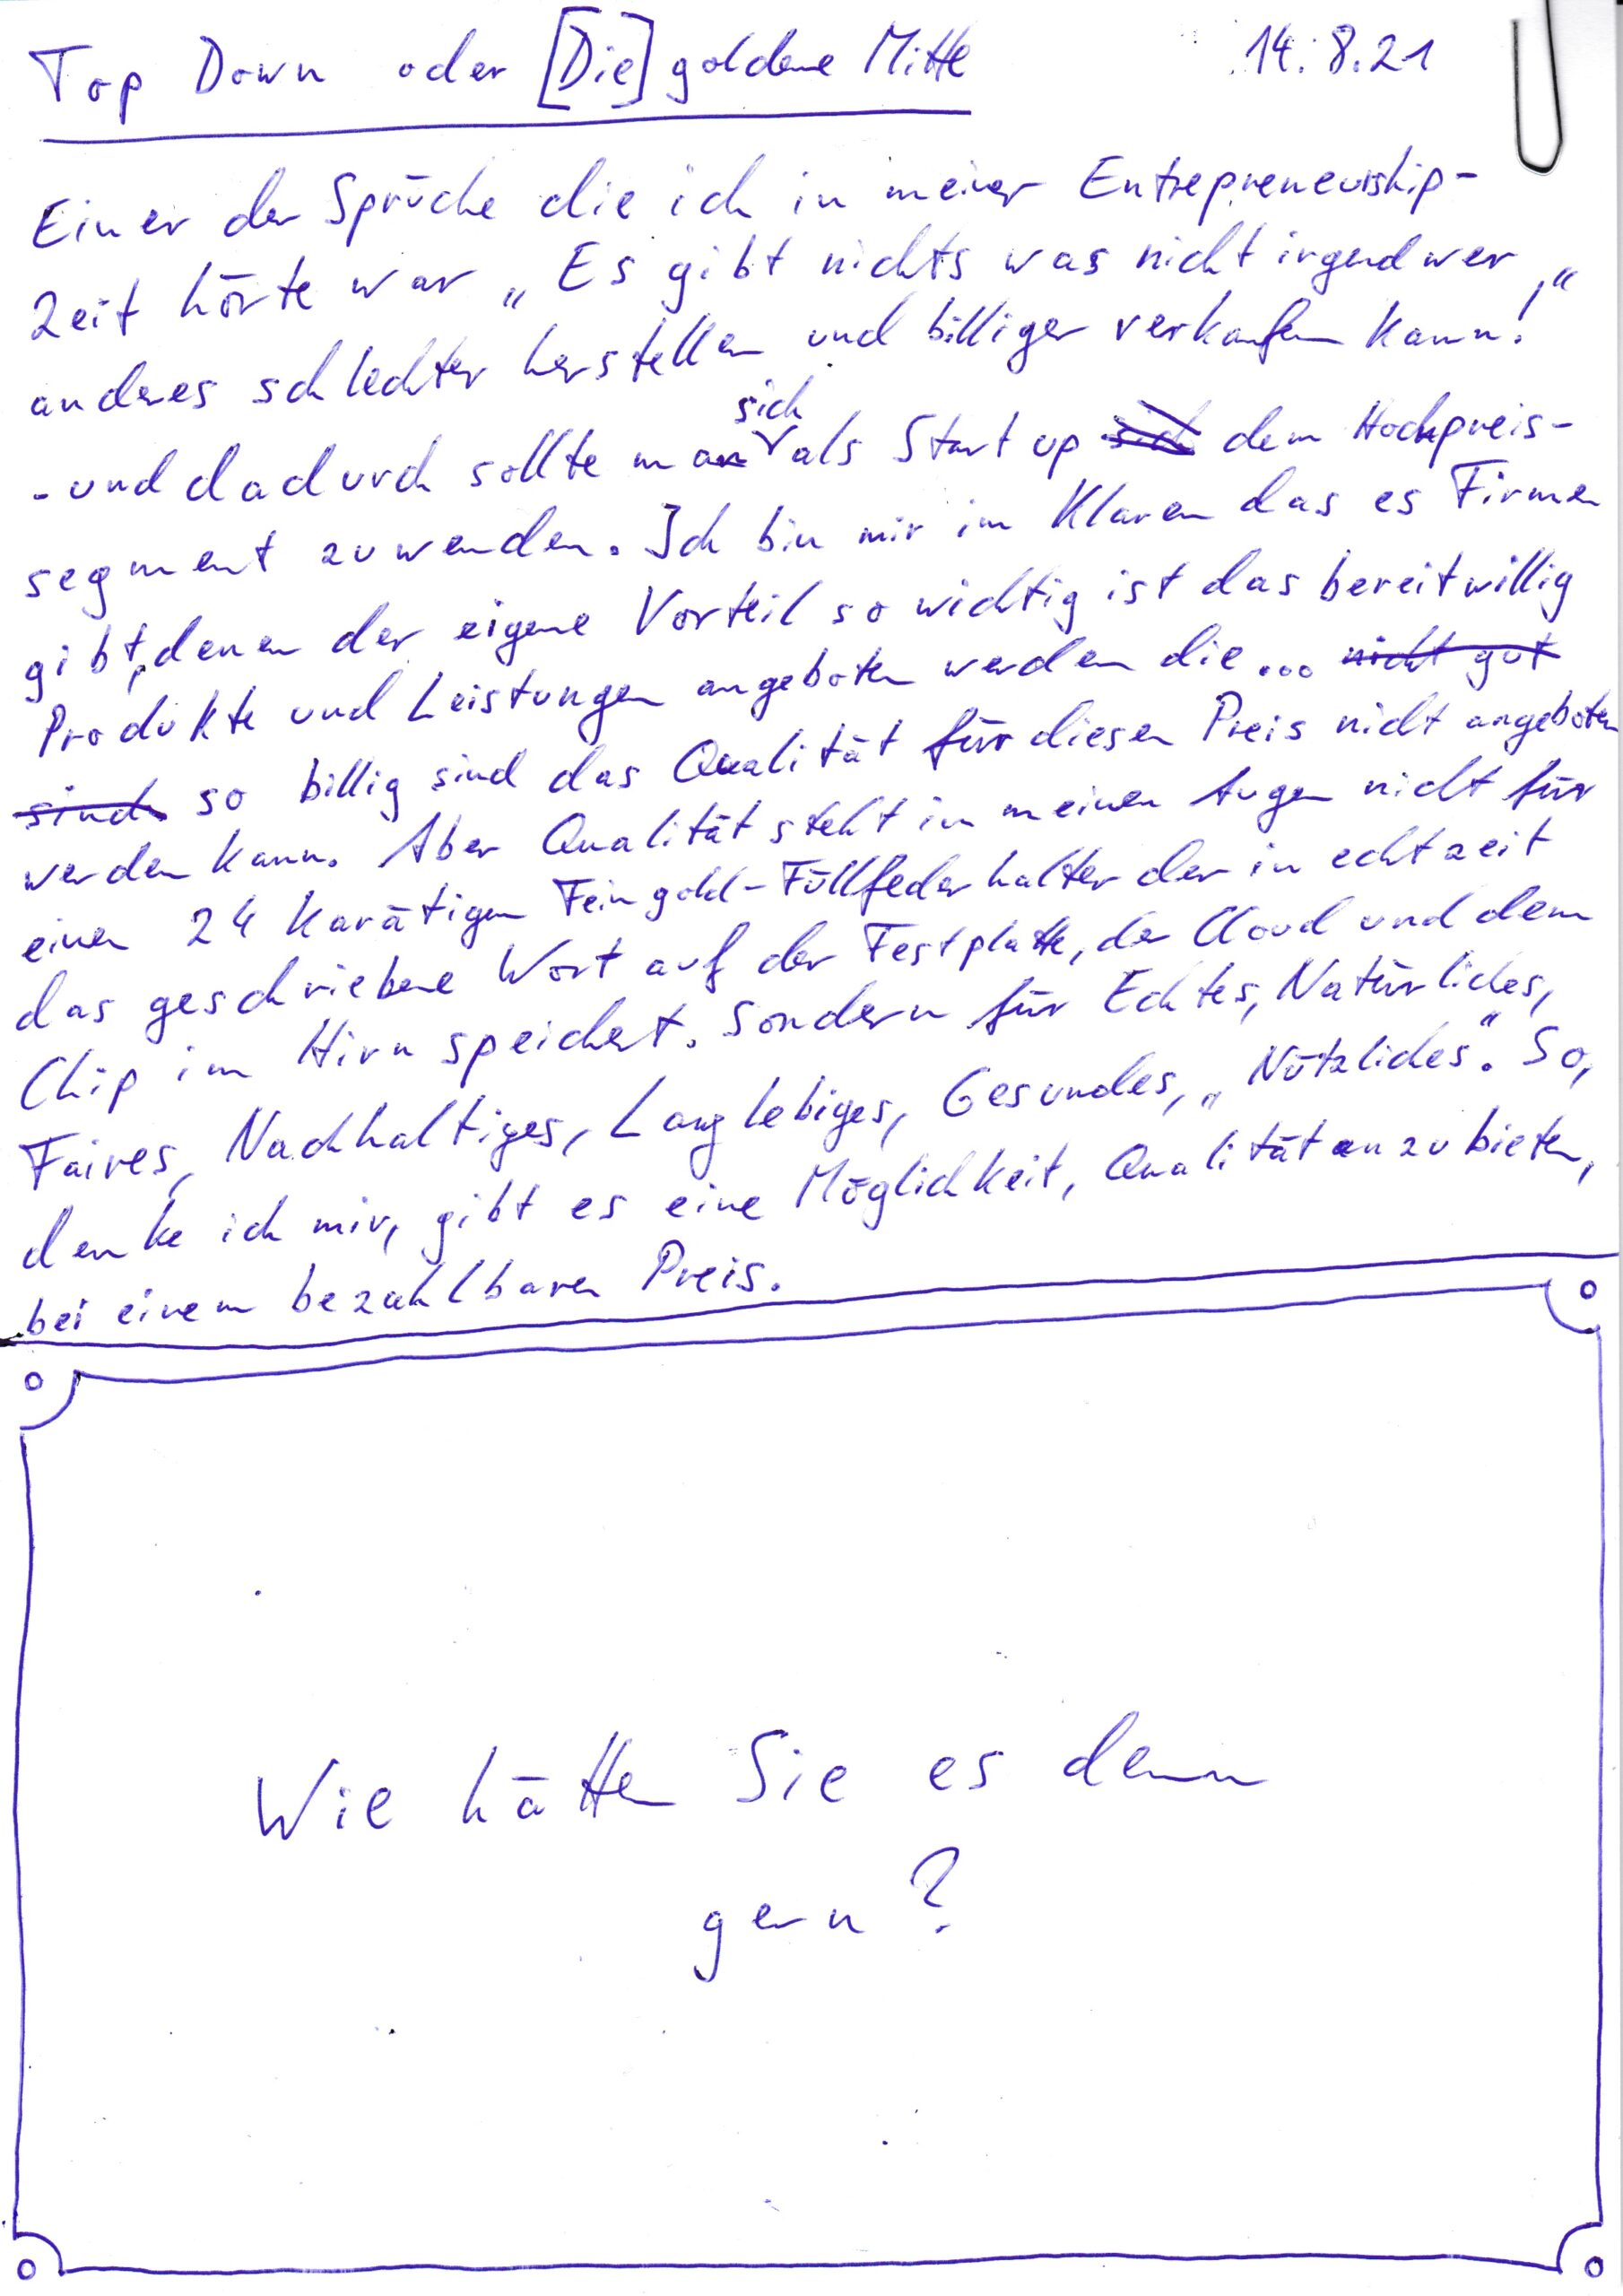 Top Down oder [Die] goldene Mitte 14.8.21
Einer der Sprüche die ich in meiner Entrepreneurship-
Zeit hörte war „Es gibt nichts was nicht irgendwer
anderes schlechter herstellen und billiger verkaufen kann!“
- und dadurch sollte man sich als Start up ~~sich~~ dem Hochpreis-
segment zuwenden. Ich bin mir im Klaren das es Firmen
gibt, denen der eigene Vorteil so wichtig ist das bereitwillig
Produkte und Leistungen angeboten werden die... ~~nicht gut~~
~~sind~~ so billig sind das Qualität für diesen Preis nicht angeboten
werden kann. Aber Qualität steht in meinen Augen nicht für
einen 24 karätigen Feingold-Füllfederhalter der in echtzeit
das geschriebene Wort auf der Festplatte, der Cloud und dem
Chip im Hirn speichert. Sondern für Echtes, Natürliches,
Faires, Nachhaltiges, Langlebiges, Gesundes, „Nützliches“. So,
denke ich mir, gibt es eine Möglichkeit, Qualität anzubieten,
bei einem bezahlbaren Preis.
Wie hätten Sie es denn
gern?